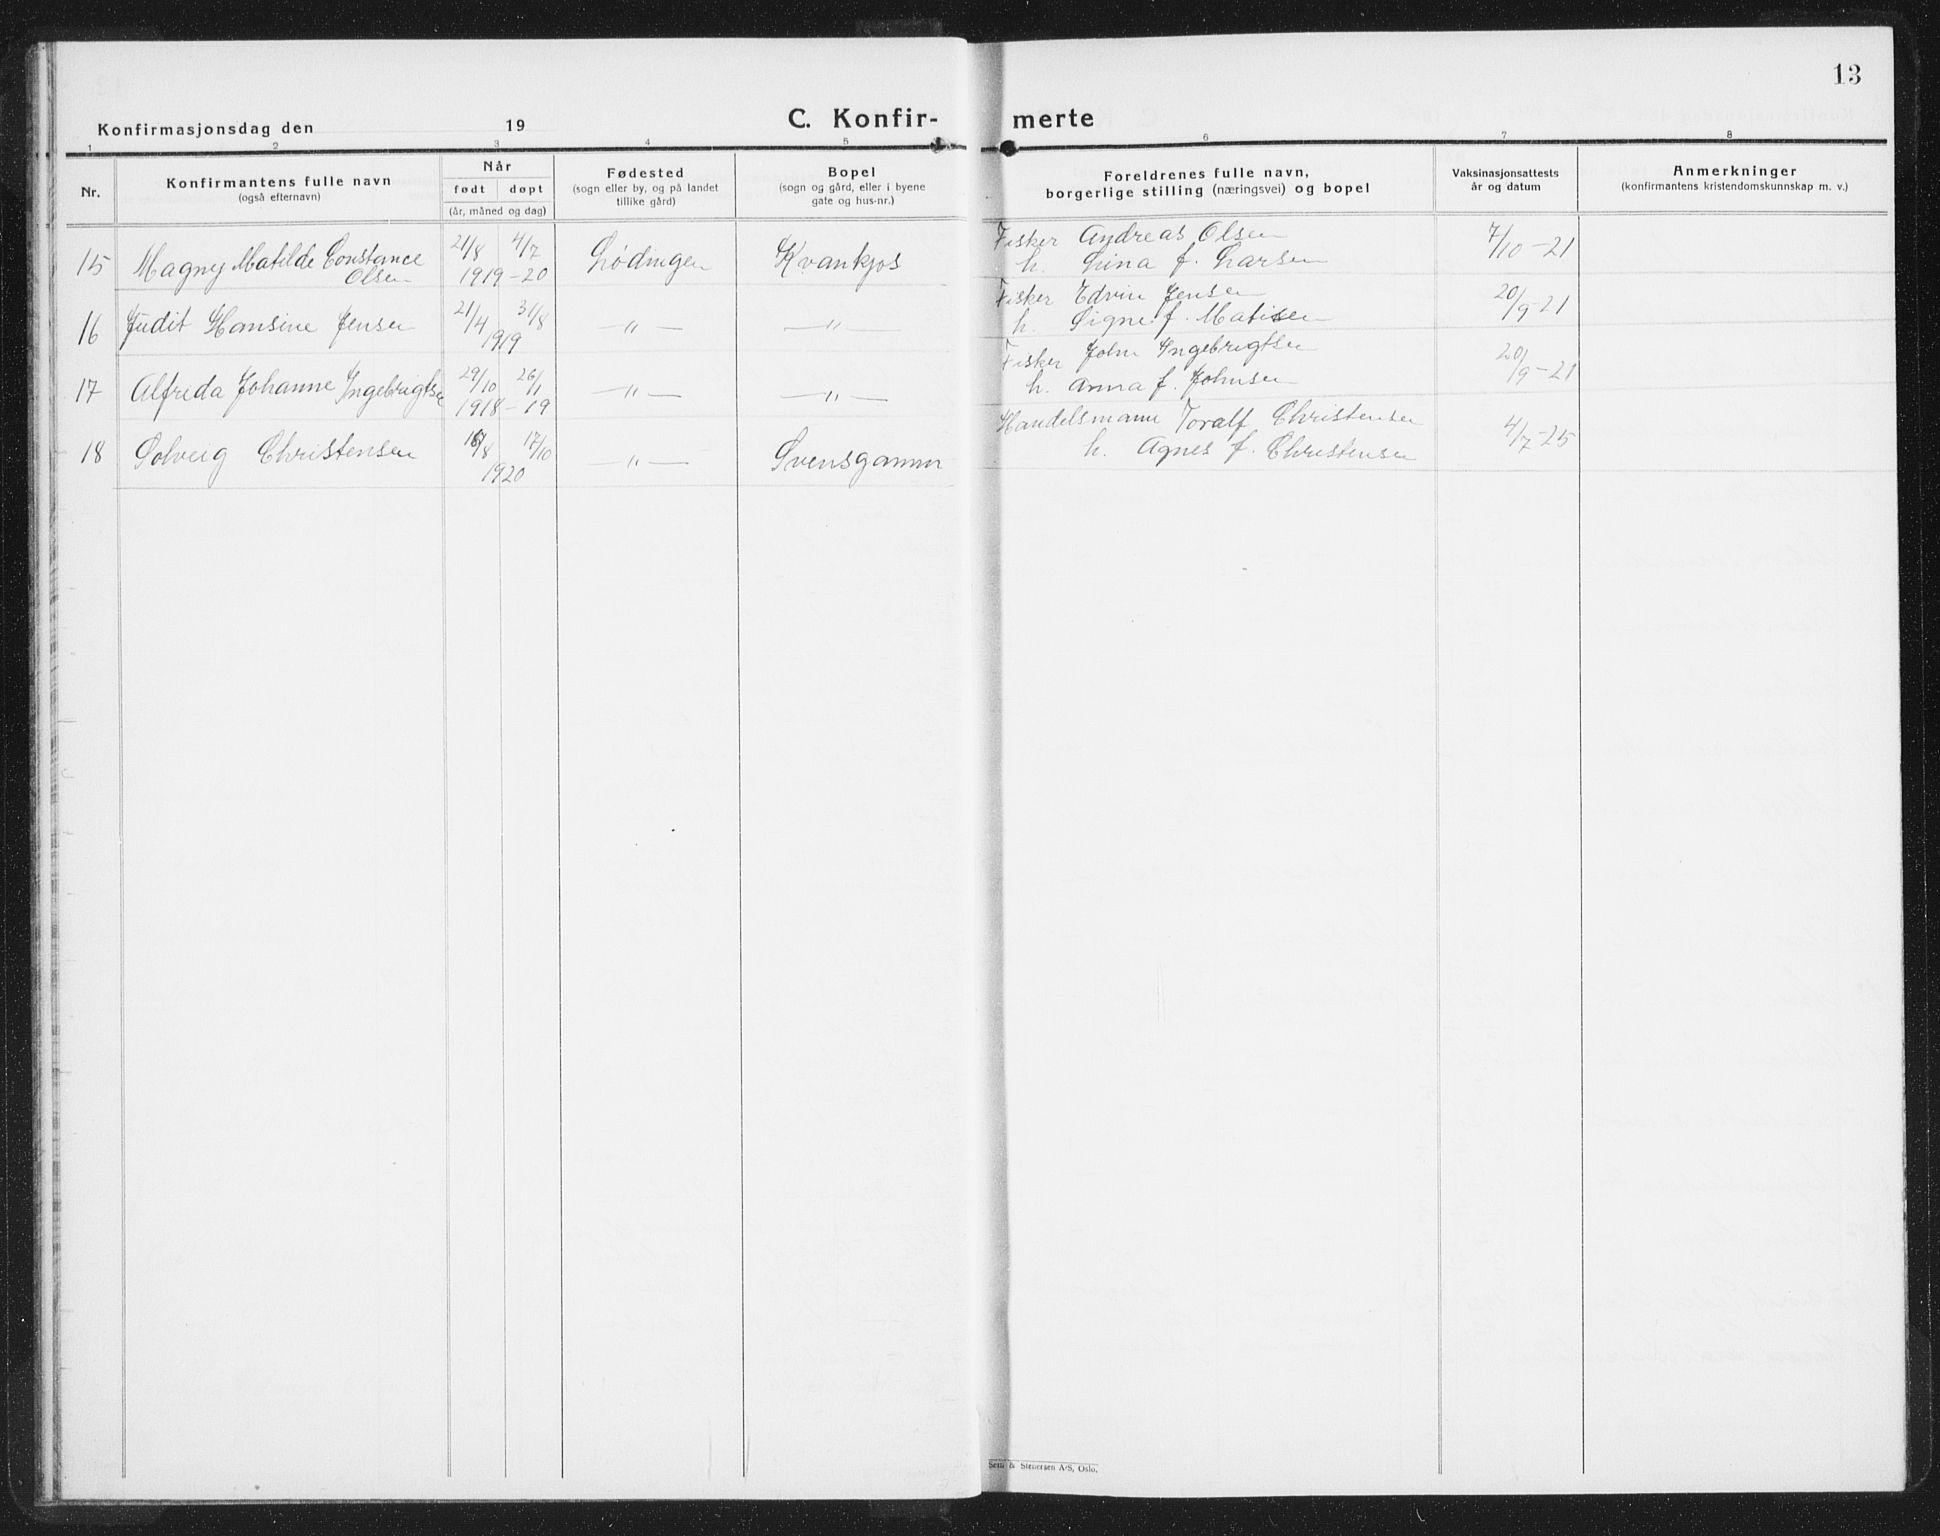 13
Konfirmasjonsdag den 19
C. Konfir- merte
1 2 3 4 5 6 7 8
Nr.
Konfirmantens fulle navn
(også efternavn)
Når
født døpt
(år, måned og dag)
Fødested
(sogn eller by, og på landet
tillike gård)
Bopel
(sogn og gård, eller i byene
gate og hus-nr.)
Foreldrenes fulle navn,
borgerlige stilling (næringsvei) og bopel
Vaksinasjonsattests
år og datum
Anmerkninger
(konfirmantens kristendomskunnskap m. v.)
15 Magny Matilde Constance 21/8 4/7 Lødingen Kvankjos Fisker Andreas Olsen 7/10-21
Olsen 1919-20 h. Lina f. Larsen
16 Judit Hansine Jensen 21/4 31/8 —"— —"— Fisker Edvin Jensen 20/9-21
1919 h. Signe f. Matisen
17 Alfreda Johanne Ingebrigtsen 29/10 26/1 —"— —"— Fisker John Ingebrigtsen 20/9-21
1918-19 h. Anna f. Johnsen
18 Solveig Christensen 17/10 —"— Svensgamm Handelsmann Toralf Christensen 4/7-25
1920 h. Agnes f. Christensen
Sem & Stenersen A/S, Oslo.